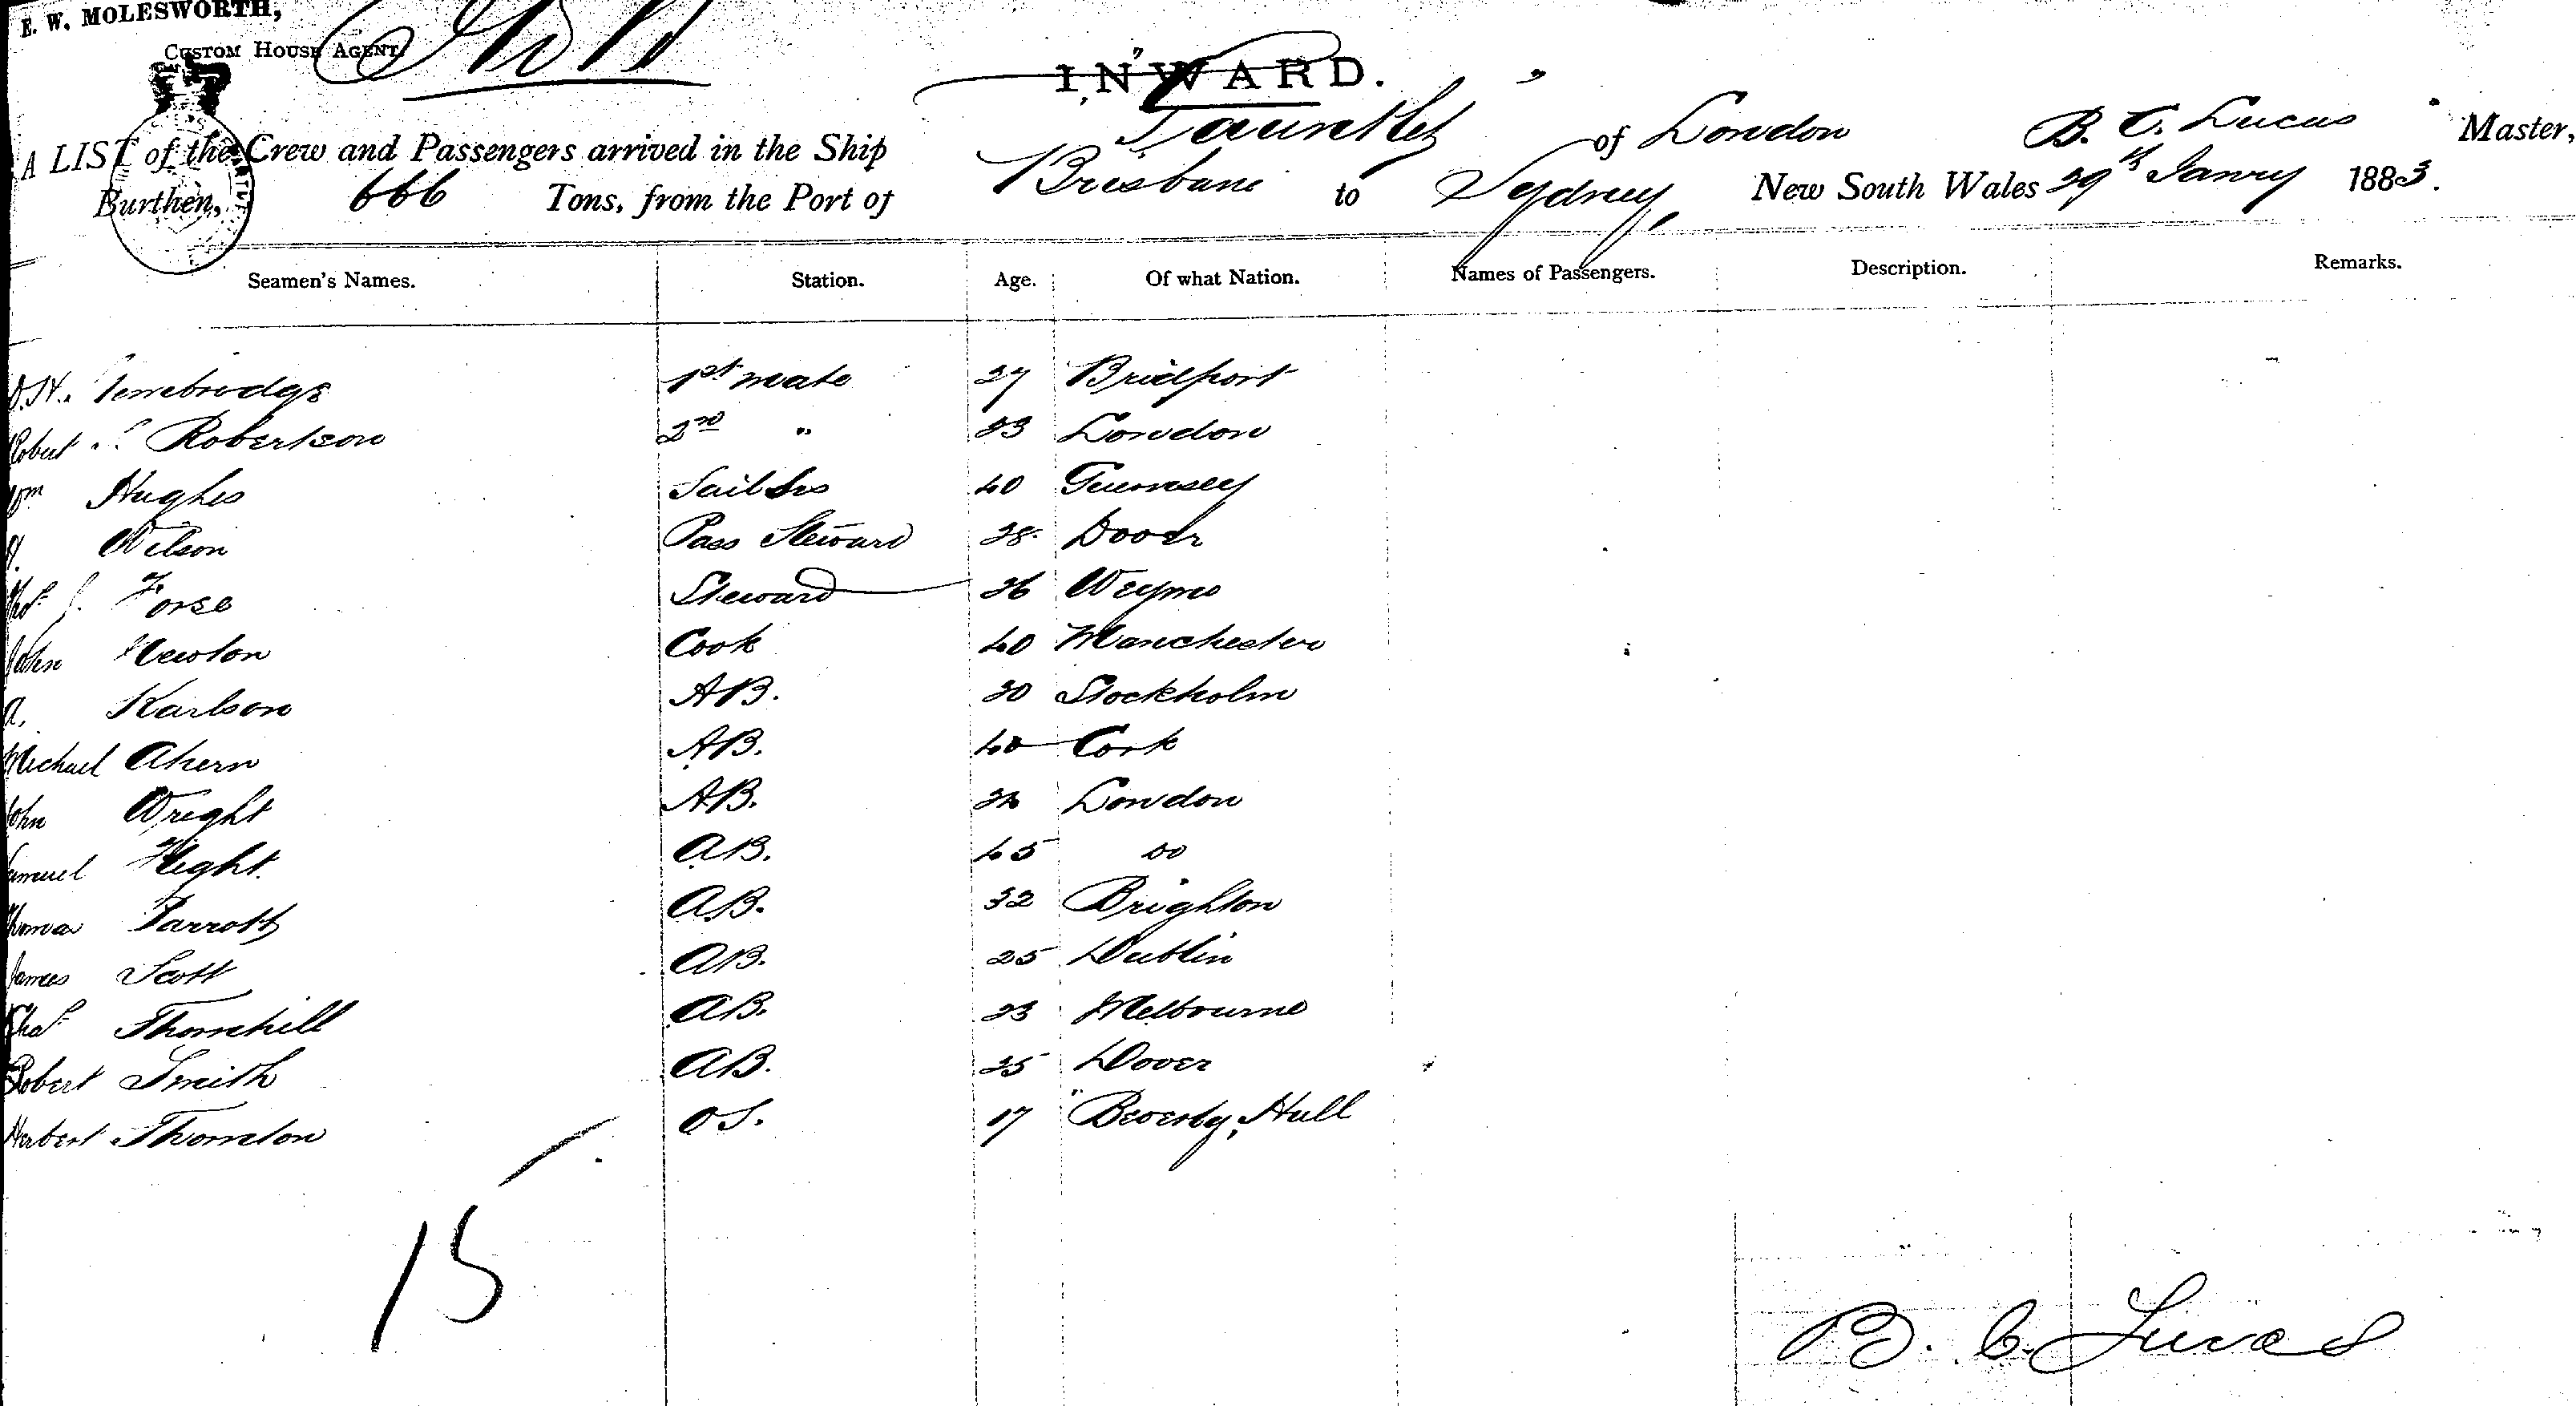 E. W. MOLESWORTH,
CUSTOM HOUSE AGENT
INWARD.
A LIST of the Crew and Passengers arrived in the Ship of London B. C. Lucas Master,
Burthen, 666 Tons, from the Port of Brisbane to Sydney, New South Wales 29th Janry 1883.
Seamen's Names. Station. Age. Of what Nation. Names of Passengers. Description. Remarks.
1st mate 27 Bridport
Robert Robertson 2nd " 23 London
Wm Hughes 40 Guernsey
Wilson Pass Steward 28 Dover
Thos J. Forse Steward 26 Weymo
John Newton Cook 40 Manchester
A. Karlson AB. 30 Stockholm
Michael Ahern AB. 40 Cork
John Wright AB. London
Samuel Hight. AB. 45 Do
Thomas Parrott AB. 32 Brighton
James Scott AB. 25 Dublin
Chas Thornhill AB. 23 Melbourne
Robert Smith AB. 25 Dover
Herbert Thornton OS. 17 Beverly, Hull
15
B. C. Lucas